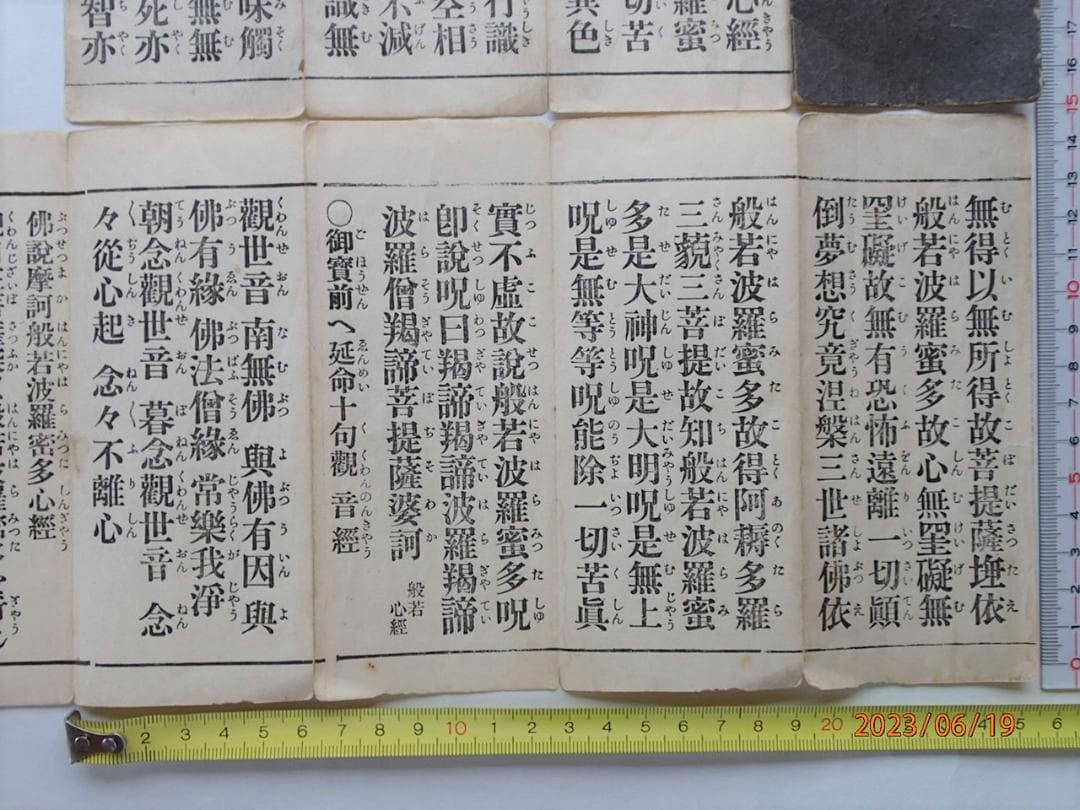 心經
羅蜜
切苦
異色
行識
空相
不減
識無
味觸
無無
死亦
智亦
無得以無所得故菩提薩埵依
般若波羅蜜多故心無罣礙無
罣礙故無有恐怖遠離一切顚
倒夢想究竟涅槃三世諸佛依
般若波羅蜜多故得阿耨多羅
三藐三菩提故知般若波羅蜜
多是大神呪是大明呪是無上
呪是無等等呪能除一切苦眞
實不虛故說般若波羅蜜多呪
卽說呪曰羯諦羯諦波羅羯諦
波羅僧羯諦菩提薩婆訶 般若心經
〇御寶前へ延命十句觀音經
觀世音 南無佛 與佛有因與
佛有緣 佛法僧緣 常樂我淨
朝念觀世音 暮念觀世音 念
々從心起 念々不離心
佛說摩訶般若波羅密多心經
2023/06/19